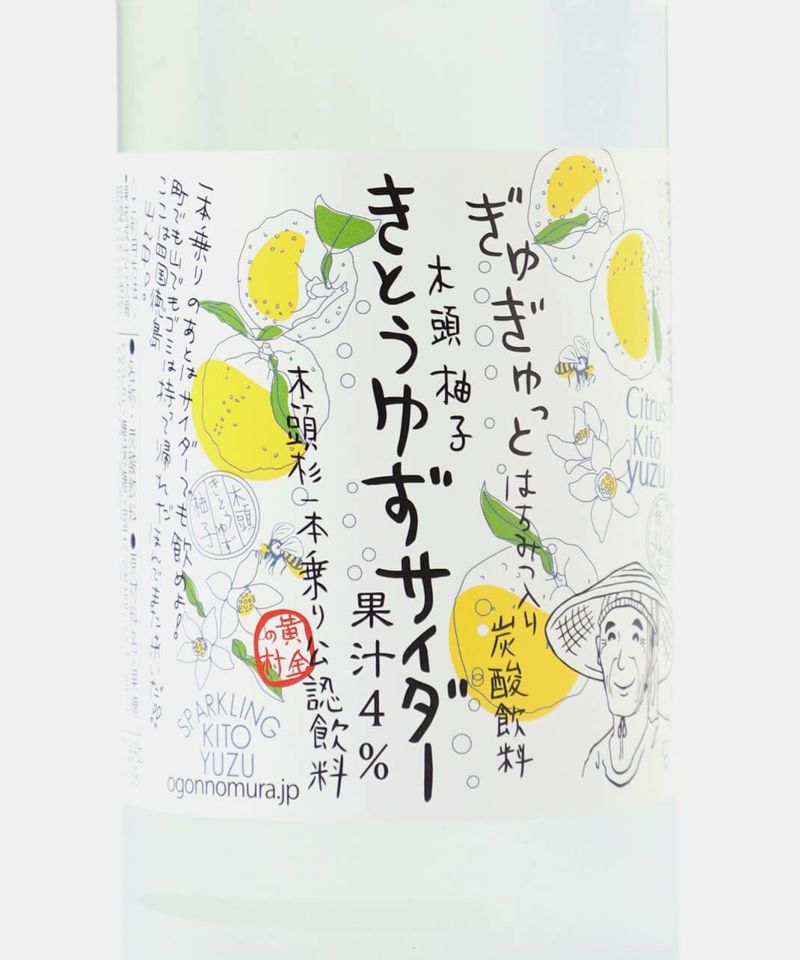 ぎゅぎゅっと
はちみつ入り
炭酸飲料
木頭柚子
きとうゆずサイダー
果汁4%
木頭杉一本乗り公認飲料
Citrus
Kito
yuzu
木頭
きとうゆず
柚子
黄金
の村
SPARKLING
KITO
YUZU
ogonnomura.jp
一本乗りのあとはサイダーでも飲めよ。
町でも山でもゴミは持って帰れだ
ここは四国徳島
山ん中。